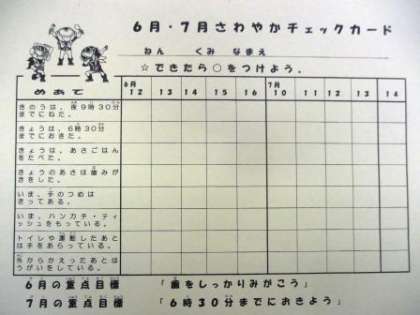 6月・7月さわやかチェックカード
ねん　くみ　なまえ
☆できたら○をつけよう。
めあて
6月
12 13 14 15 16 7月 10 11 12 13 14
きのうは、夜9時30分
までにねた。
きょうは、6時30分
までにおきた。
きょうは、あさごはん
をたべた。
きょうのあさは歯みが
きをした。
いま、手のつめは
きってある。
いま、ハンカチ・ティ
ッシュをもっている。
トイレや運動したあと
は手をあらっている。
外からかえったあとは
うがいをしている。
6月の重点目標　「歯をしっかりみがこう」
7月の重点目標　「6時30分までにおきよう」